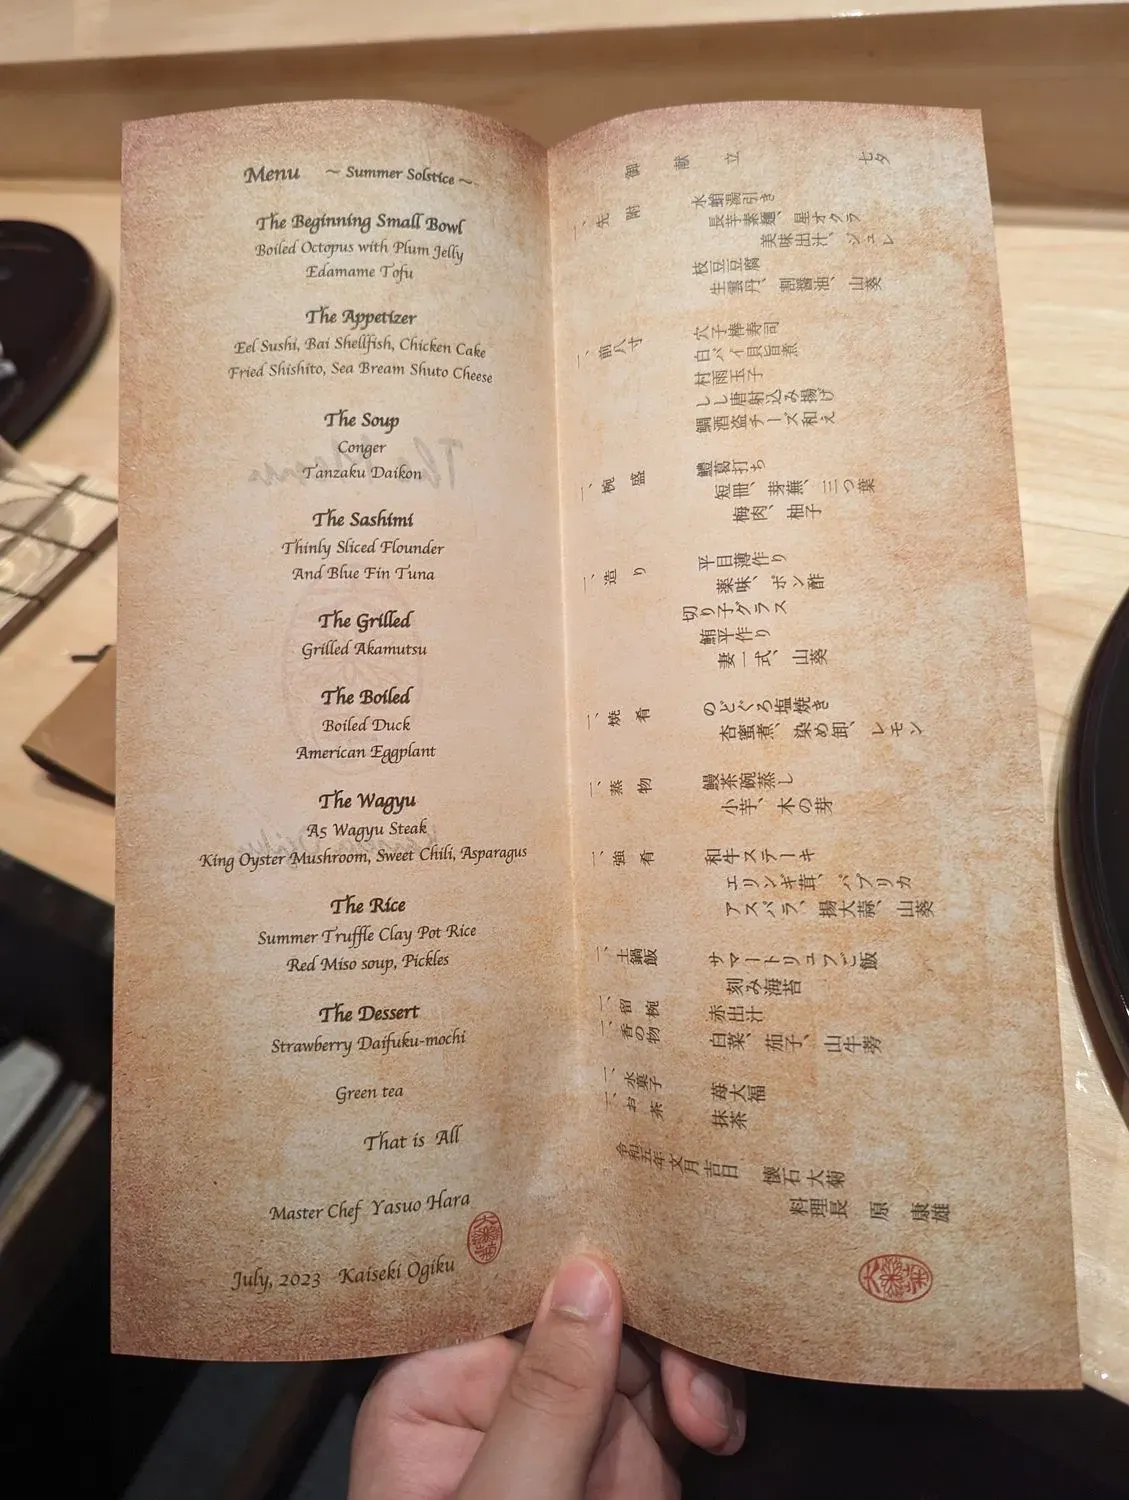 Menu ~ Summer Solstice ~
The Beginning Small Bowl
Boiled Octopus with Plum Jelly
Edamame Tofu
The Appetizer
Eel Sushi, Bai Shellfish, Chicken Cake
Fried Shishito, Sea Bream Shuto Cheese
The Soup
Conger
Tanzaku Daikon
The Sashimi
Thinly Sliced Flounder
And Blue Fin Tuna
The Grilled
Grilled Akamutsu
The Boiled
Boiled Duck
American Eggplant
The Wagyu
A5 Wagyu Steak
King Oyster Mushroom, Sweet Chili, Asparagus
The Rice
Summer Truffle Clay Pot Rice
Red Miso soup, Pickles
The Dessert
Strawberry Daifuku-mochi
Green tea
That is All
Master Chef Yasuo Hara
July, 2023 Kaiseki Ogiku
御献立 七夕
一、先附
水蛸湯引き
長芋素麺、星オクラ
美味出汁、ジュレ
枝豆豆腐
生雲丹、割醤油、山葵
一、前八寸
穴子棒寿司
白バイ貝旨煮
村雨玉子
しし唐射込み揚げ
鯛酒盗チーズ和え
一、椀盛
鱧葛打ち
短冊、芽蕪、三つ葉
梅肉、柚子
一、造り
平目薄作り
薬味、ポン酢
切り子グラス
鮪平作り
妻一式、山葵
一、焼肴
のどぐろ塩焼き
杏蜜煮、染め卸、レモン
一、蒸物
鰻茶碗蒸し
小芋、木の芽
一、強肴
和牛ステーキ
エリンギ茸、パプリカ
アスパラ、揚大蒜、山葵
一、土鍋飯
サマートリュフご飯
刻み海苔
一、留椀
赤出汁
一、香の物
白菜、茄子、山牛蒡
一、水菓子
苺大福
一、お茶
抹茶
令和五年文月吉日
懐石大菊
料理長 原 康雄